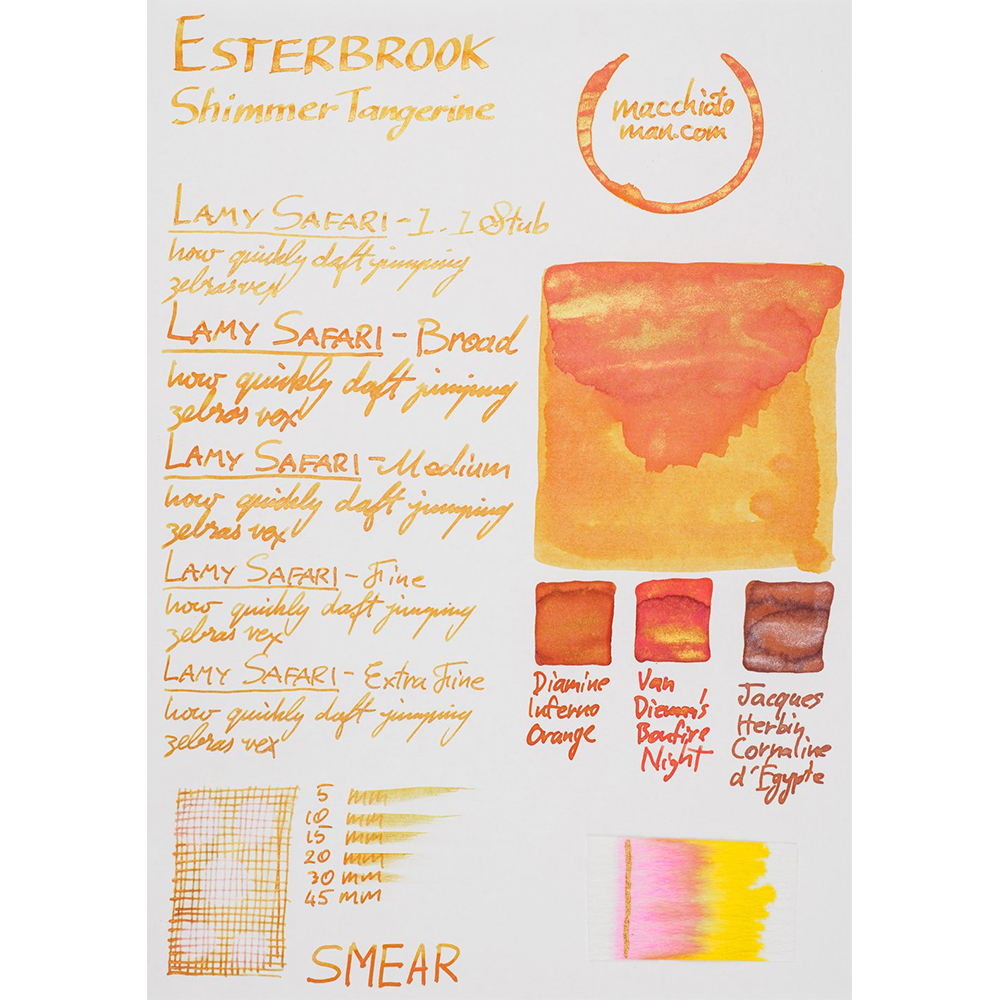 ESTERBROOK
Shimmer Tangerine
macchiato
man.com
LAMY SAFARI - 1.1 Stub
how quickly daft jumping
zebras vex
LAMY SAFARI - Broad
how quickly daft jumping
zebras vex
LAMY SAFARI - Medium
how quickly daft jumping
zebras vex
LAMY SAFARI - Fine
how quickly daft jumping
zebras vex
LAMY SAFARI - Extra Fine
how quickly daft jumping
zebras vex
Diamine
Inferno
Orange
Van
Dieman's
Bonfire
Night
Jacques
Herbin
Cornaline
d'Egypte
5 mm
10 mm
15 mm
20 mm
30 mm
45 mm
SMEAR